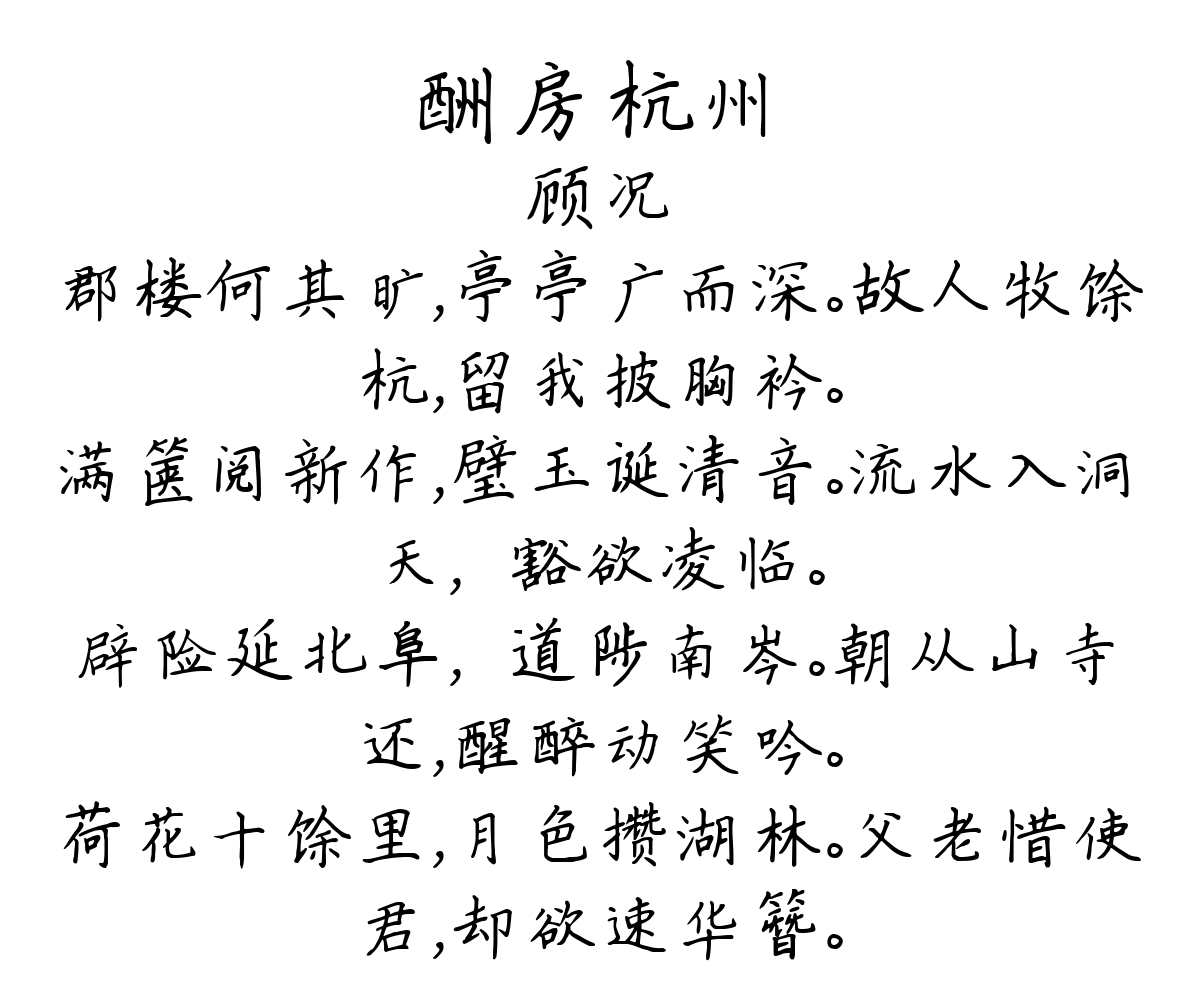 酬房杭州
顾况
郡楼何其旷,亭亭广而深。故人牧馀
杭,留我披胸衿。
满箧阅新作,璧玉诞清音。流水入洞
天，豁欲凌临。
辟险延北阜，道陟南岑。朝从山寺
还,醒醉动笑吟。
荷花十馀里,月色攒湖林。父老惜使
君,却欲速华簪。